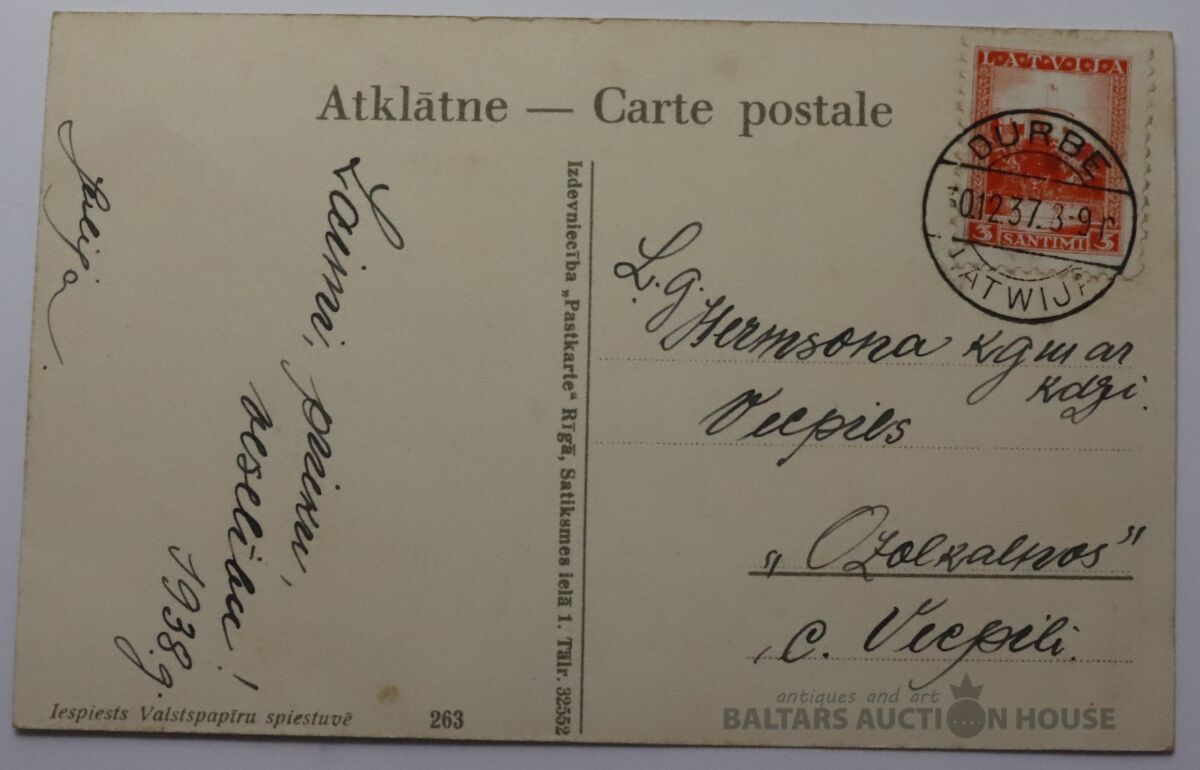 Atklātne — Carte postale
LATVIJA
3 SANTIMI 3
DURBE
30.12.37. 8-9
LATWIJA
Laimi, prieku,
veselību!
1938.g.
Izdevniecība „Pastkarte“ Rīgā, Satiksmes ielā 1. Tālr. 32552
L. g.
Hermsona kgm ar
kdzi.
Vecpils
„Ozolkalnos”
c. Vecpili.
Iespiests Valstspapīru spiestuvē 263
antiques and art
BALTARS AUCTION HOUSE